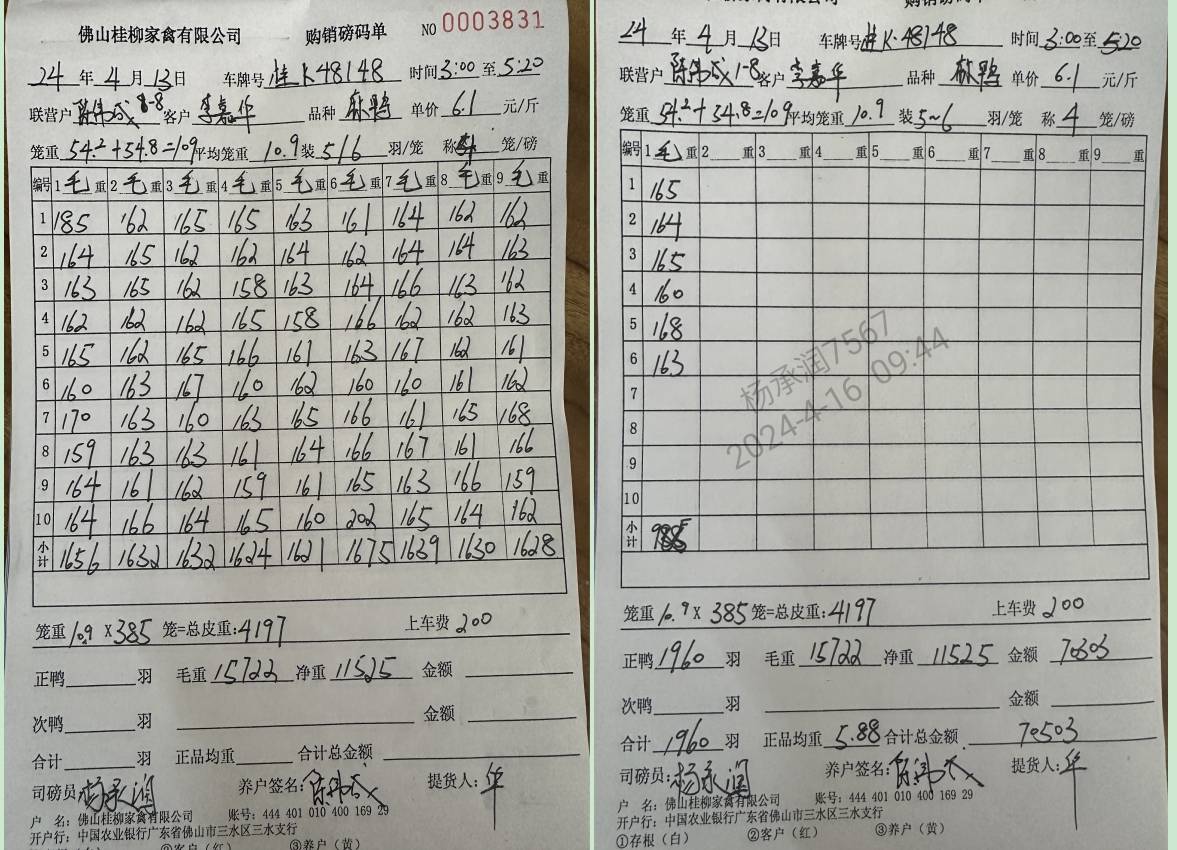 佛山桂柳家禽有限公司 购销磅码单 NO 0003831
24 年 4 月 13 日 车牌号 桂K·48148 时间 3:00 至 5:20
联营户 陈伟 1-8 客户 李嘉华 品种 麻鸭 单价 6.1 元/斤
笼重 54.2+54.8=109 平均笼重 10.9 装 5/6 羽/笼 称 4 笼/磅
编号 1 毛 重 2 毛 重 3 毛 重 4 毛 重 5 毛 重 6 毛 重 7 毛 重 8 毛 重 9 毛 重
1 185 162 165 165 163 161 164 162 162
2 164 165 162 162 164 162 164 164 163
3 163 165 162 158 163 164 166 163 162
4 162 162 162 165 158 166 162 162 163
5 165 162 165 166 161 163 167 162 161
6 160 163 167 160 162 160 160 161 162
7 170 163 160 163 165 166 161 165 168
8 159 163 163 161 164 166 167 161 166
9 164 161 162 159 161 165 163 166 159
10 164 166 164 165 160 202 165 164 162
小计 1656 1632 1632 1624 1621 1675 1639 1630 1628
笼重 10.9 X 385 笼=总皮重:4197 上车费 200
正鸭 羽 毛重 15722 净重 11525 金额
次鸭 羽 金额
合计 羽 正品均重 合计总金额
司磅员:杨承润 养户签名:陈伟 提货人:华
户 名:佛山桂柳家禽有限公司 账号:444 401 010 400 169 29
开户行:中国农业银行广东省佛山市三水区三水支行
②客户(红) ③养户(黄)
24 年 4 月 13 日 车牌号 桂K·48148 时间 3:00 至 5:20
联营户 陈伟 1-8 客户 李嘉华 品种 麻鸭 单价 6.1 元/斤
笼重 54.2+54.8=109 平均笼重 10.9 装 5~6 羽/笼 称 4 笼/磅
编号 1 毛 重 2 重 3 重 4 重 5 重 6 重 7 重 8 重 9 重
1 165
2 164
3 165
4 160
5 168
6 163
7
8
9
10
小计 985
杨承润7567
2024-4-16 09:44
笼重 10.9 X 385 笼=总皮重:4197 上车费 200
正鸭 1960 羽 毛重 15722 净重 11525 金额 70303
次鸭 羽 金额
合计 1960 羽 正品均重 5.88 合计总金额 70503
司磅员:杨承润 养户签名:陈伟 提货人:华
户 名:佛山桂柳家禽有限公司 账号:444 401 010 400 169 29
开户行:中国农业银行广东省佛山市三水区三水支行
①存根(白) ②客户(红) ③养户(黄)